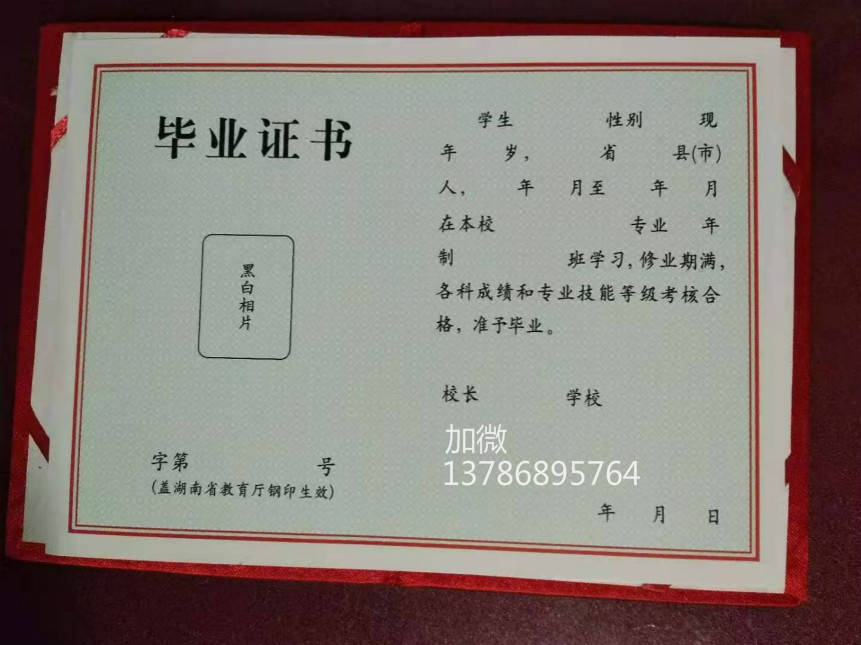 毕业证书
黑白相片
字第 号
(盖湖南省教育厅钢印生效)
学生 性别 现
年 岁， 省 县(市)
人， 年 月至 年 月
在本校 专业 年
制 班学习，修业期满，
各科成绩和专业技能等级考核合
格，准予毕业。
校长 学校
加微
13786895764
年 月 日